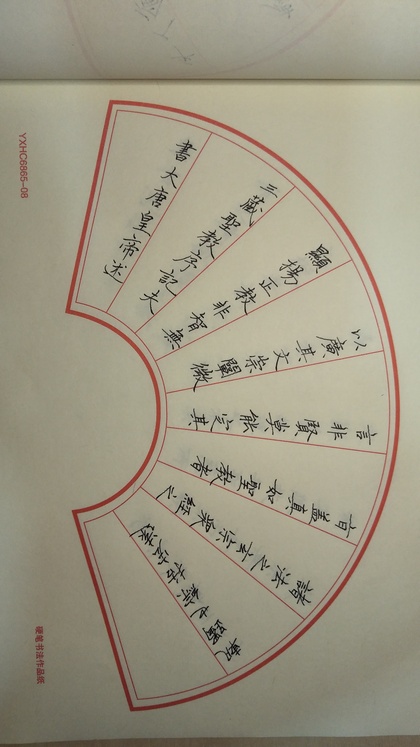 書大唐皇帝述
三藏聖教序記夫
顯揚正教非智無
以廣其文崇闡微
言非賢莫能定其
旨蓋真如聖教者
諸法之玄宗眾經之
軌躅也
YXHC6865-08
硬笔书法作品纸